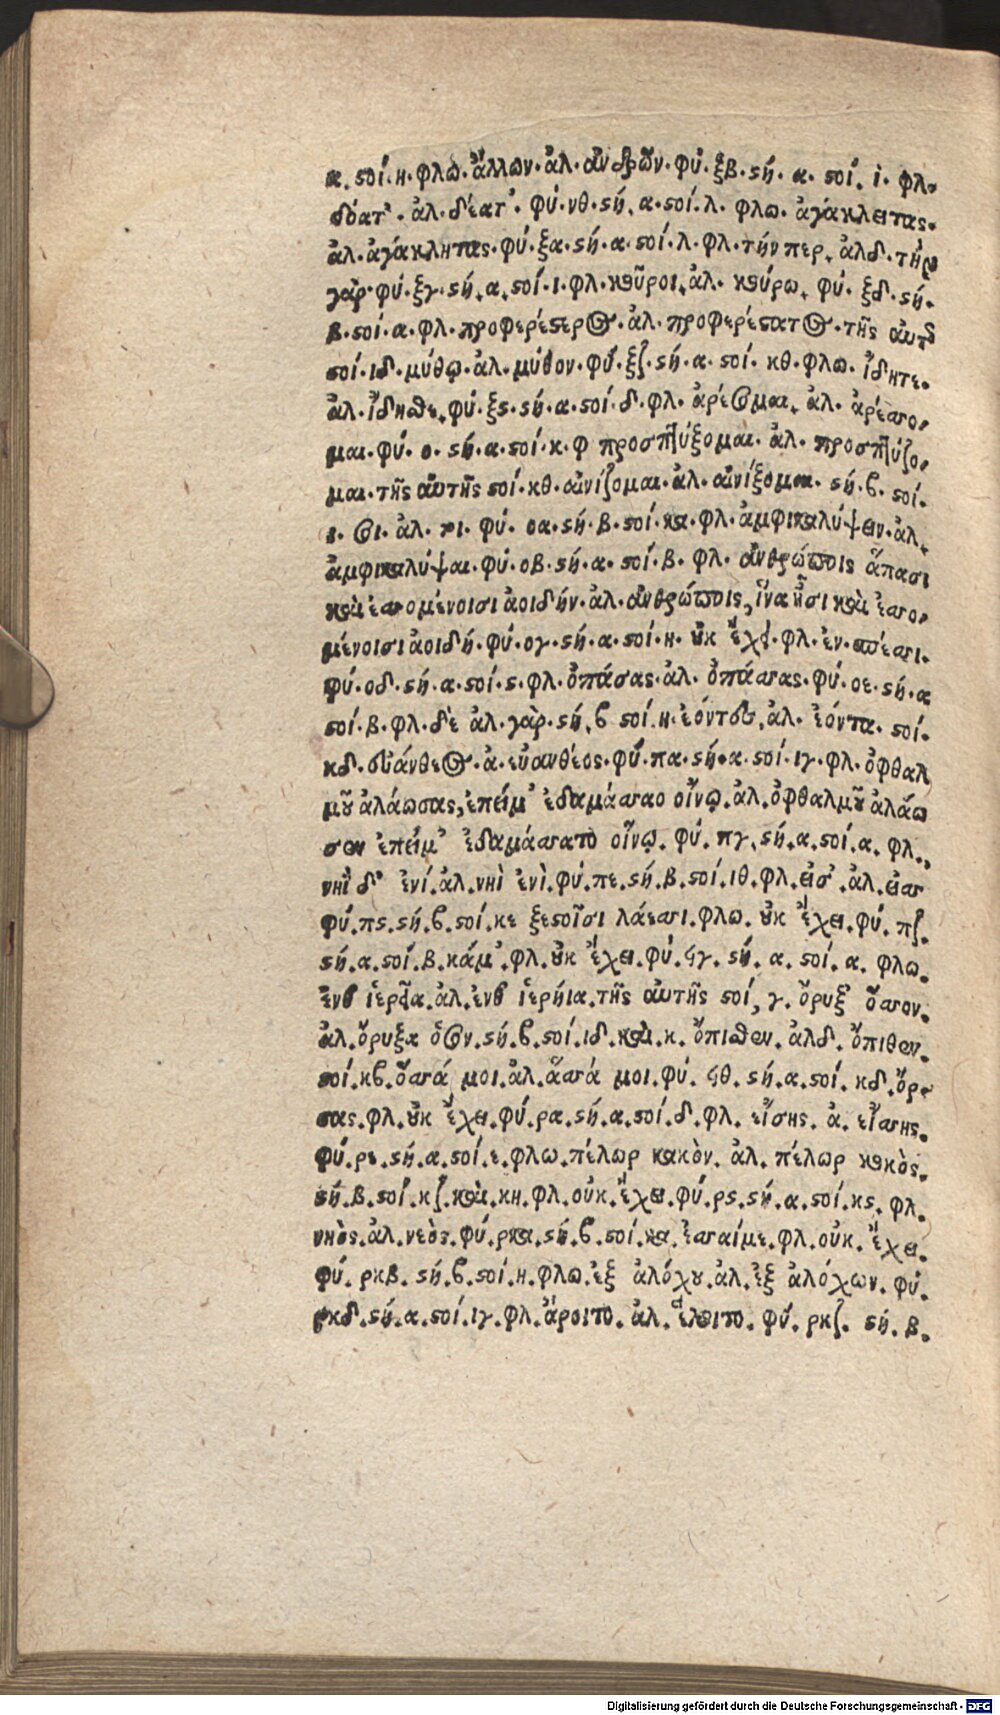 α. ϛοί. η. φλω. ἄλλων. ἀλ. ἀνδρῶν. φύ. ξβ. ϛή. α. ϛοί. ὶ. φλ.
δόατ’. ἀλ. δέατ’. φύ. νθ. ϛή. α. ϛοί. λ. φλω. ἀγάκλειτας.
ἀλ. ἀγάκλητας. φύ. ξα. ϛή. α. ϛοί. λ. φλ. τήν περ. ἀλδ. τὴν
γὰρ. φύ. ξγ. ϛή. α. ϛοί. ι. φλ. κοῦροι. ἀλ. κούρω. φύ. ξδ. ϛή.
β. ϛοί. α. φλ. προφερέϛερος. ἀλ. προφερέϛατος. τῆς αὐτῆς
ϛοί. ιδ. μύθῳ. ἀλ. μύθον. φύ. ξζ. ϛή. α. ϛοί. κθ. φλω. ἴδητε.
ἀλ. ἴδησθε. φύ. ξϛ. ϛή. α. ϛοί. δ. φλ. ἀρέσομαι. ἀλ. ἀρέσσο,
μαι. φύ. ο. ϛή. α. ϛοί. κ. φ προσπτύξομαι. ἀλ. προσπτύζο,
μαι. τῆς αὐτῆς ϛοί. κθ. αἰνίζομαι. ἀλ. αἰνίξομαι. ϛή. β. ϛοί.
ι. σι. ἀλ. τι. φύ. οα. ϛή. β. ϛοί. κα. φλ. ἀμφικαλύψειν. ἀλ.
ἀμφικαλύψαι. φύ. οβ. ϛή. α. ϛοί. β. φλ. ἀνθρώποις ἅπασι
καὶ ἐσσομένοισι ἀοιδήν. ἀλ. ἀνθρώποις, ἵνα ᾖσι καὶ ἐσσο,
μένοισι ἀοιδή. φύ. ογ. ϛή. α. ϛοί. η. οὐκ ἔχει. φλ. ἐν. πέσσι.
φύ. οδ. ϛή. α. ϛοί. ϛ. φλ. ὀπάσας. ἀλ. ὀπάσσας. φύ. οε. ϛή. α
ϛοί. β. φλ. δὲ ἀλ. γὰρ. ϛή. β ϛοί. η. ἐόντες. ἀλ. ἐόντα. ϛοί.
κδ. εὐάνθεος. ἀ. εὐανθέος. φύ. πα. ϛή. α. ϛοί. ιγ. φλ. ὀφθαλ
μοῦ ἀλάωσας, ἐπείμ’ ἐδαμάσσαο οἴνῳ. ἀλ. ὀφθαλμοῦ ἀλάω
σεν ἐπείμ’ ἐδαμάσσατο οἴνῳ. φύ. πγ. ϛή. α. ϛοί. α. φλ.
νηῒ δ’ ἐνί. ἀλ. νηῒ ἐνὶ. φύ. πε. ϛή. β. ϛοί. ιθ. φλ. εἰσ’. ἀλ. εἰσσ
φύ. πϛ. ϛή. β. ϛοί. κε ξεϛοῖσι λάεσσι. φλω. οὐκ ἔχει. φύ. πζ.
ϛή. α. ϛοί. β. κάμ’. φλ. οὐκ ἔχει. φύ. ϟγ. ϛή. α. ϛοί. α. φλω.
ἔνθ ἱερεῖα. ἀλ. ἔνθ ἱερήια. τῆς αὐτῆς ϛοί, γ. ὄρυξ’ ὅσσον.
ἀλ. ὄρυξα ὅσον. ϛή. β. ϛοί. ιδ. καὶ. κ. ὄπισθεν. ἀλδ. ὄπιθεν.
ϛοί. κβ. ὅσσά μοι. ἀλ. ἅσσά μοι. φύ. ϟθ. ϛή. α. ϛοί. κδ. ὄρ
σας. φλ. οὐκ ἔχει. φύ. ρα. ϛή. α. ϛοί. δ. φλ. εἴσης. ἀ. εἴσσης.
φύ. ρε. ϛή. α. ϛοί. ε. φλω. πέλωρ κακὸν. ἀλ. πέλωρ κακὸς.
ϛή. β. ϛοί. κζ. καὶ. κη. φλ. οὐκ. ἔχει. φύ. ρϛ. ϛή. α. ϛοί. κϛ. φλ.
νηὸς. ἀλ. νεὸς. φύ. ρκα. ϛή. β. ϛοί. κα. ἐσσαίμε. φλ. οὐκ. ἔχει.
φύ. ρκβ. ϛή. β. ϛοί. η. φλω. ἐξ ἀλόχου. ἀλ. ἐξ ἀλόχων. φύ.
ρκδ. ϛή. α. ϛοί. ιγ. φλ. ἄροιτο. ἀλ. ἕλοιτο. φύ. ρκζ. ϛή. β.
Digitalisierung gefördert durch die Deutsche Forschungsgemeinschaft - DFG